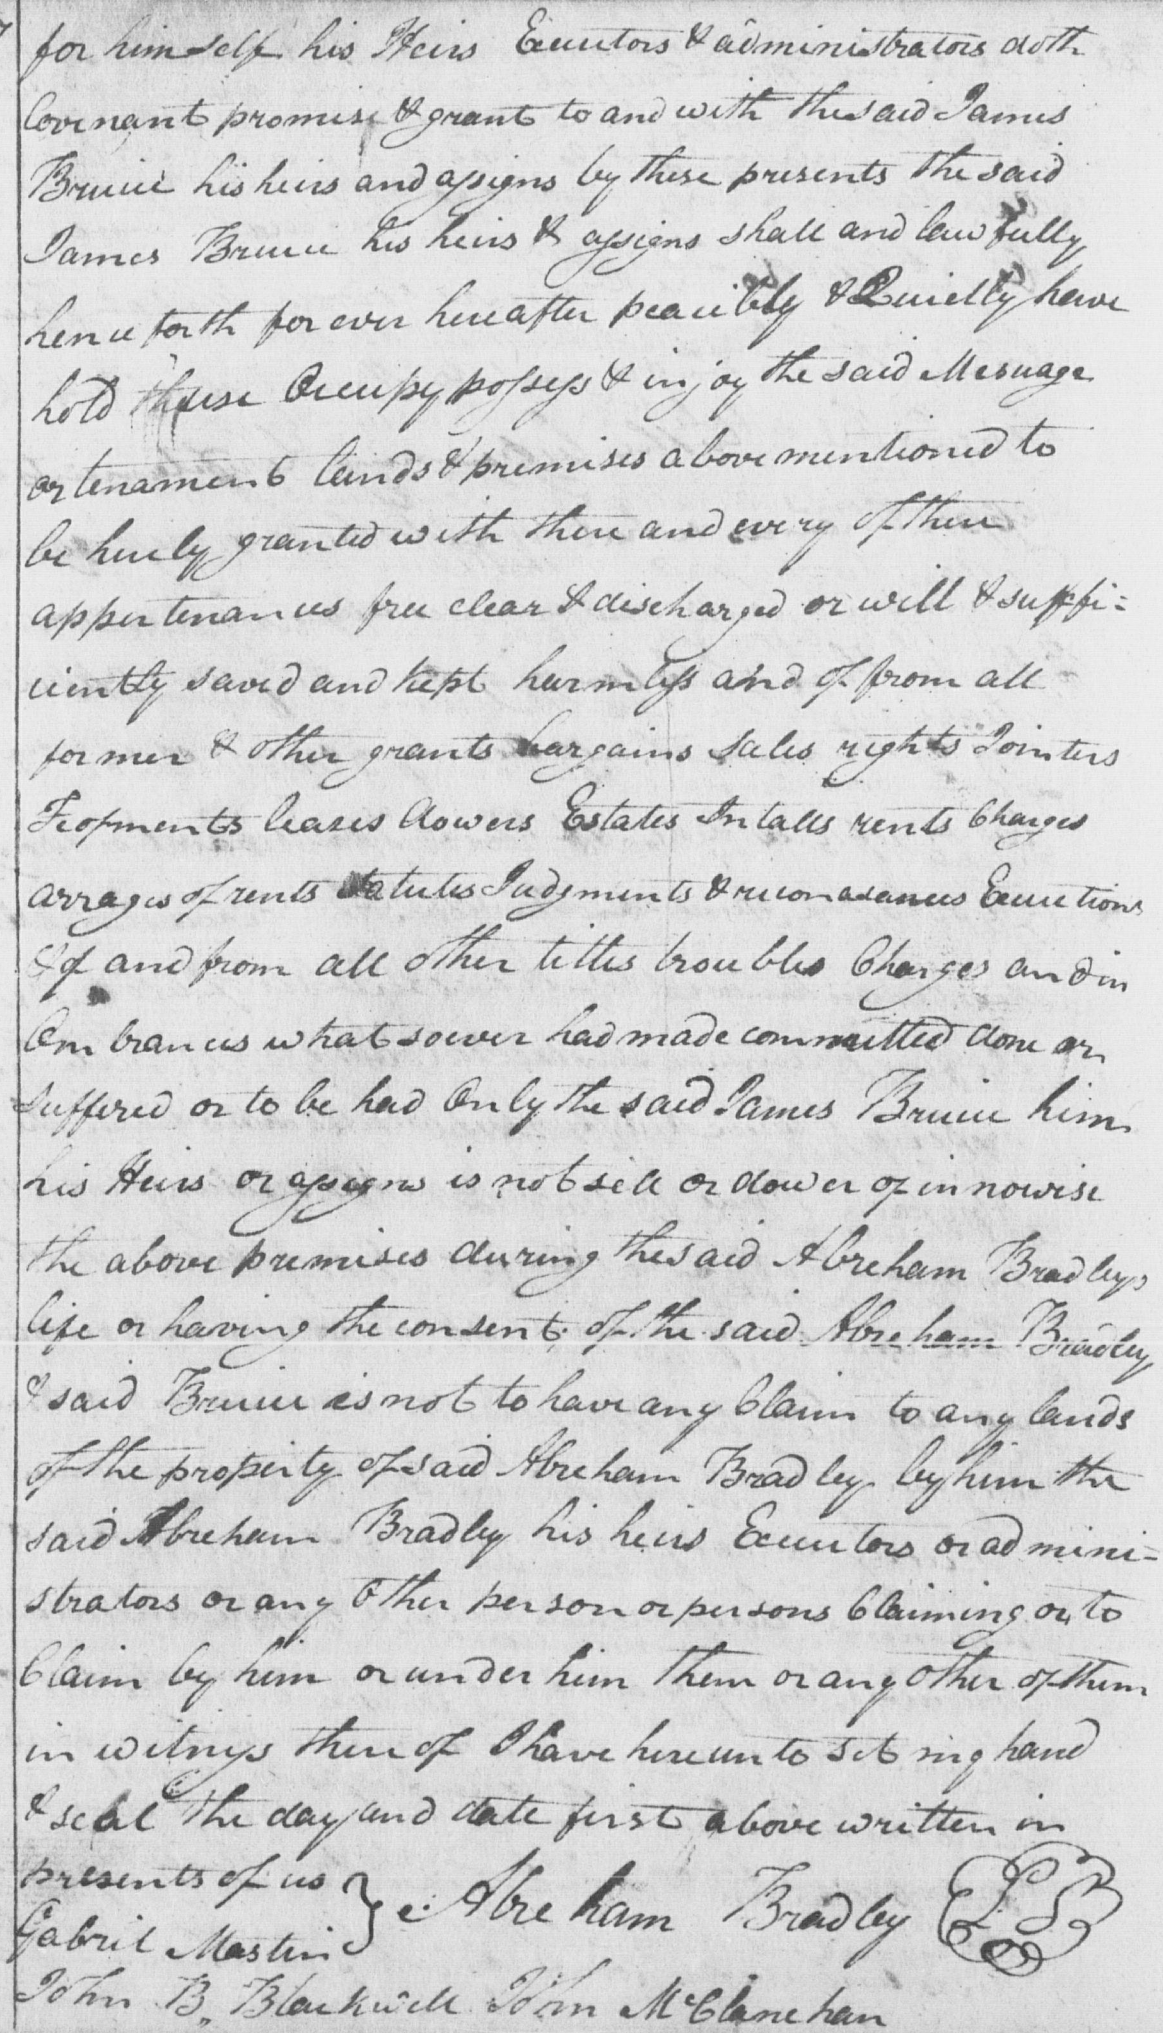 for himself his Heirs Executors & administrators doth
Covenant promise & grant to and with the said James
Bruice his heirs and assigns by these presents the said
James Bruice his heirs & assigns shall and lawfully
henceforth forever hereafter peaceibly & Quietly have
hold use Occupy possess & injoy the said Mesuage
or tenament lands & premises above mentioned to
be hereby granted with there and every of there
appertenances free clear & discharged or will & suffi=
ciently saved and kept harmless and of from all
former & other grants bargains Sales rights Jointers
Feofments leases dowers Estates Intalls rents Charges
arrages of rents Statutes Judgments & reconasances Executions
& of and from all other titles troubles Charges and in
Cumbrances whatsoever had made committed done or
Suffered or to be had Only the said James Bruice him
his Heirs or assigns is not sell or dower of in nowise
the above premises during the said Abreham Bradleys
life or having the consent of the said Abreham Bradley
& said Bruice is not to have any Claim to any lands
of the property of said Abreham Bradley by him the
said Abreham Bradley his heirs Executors or admini-
strators or any Other person or persons Claiming or to
Claim by him or under him them or any other of them
in witness thereof I have hereunto set my hand
& seal the day and date first above written in
presents of us
Abreham Bradley LS
Gabril Mastin
John B. Blackwell John McClanehan